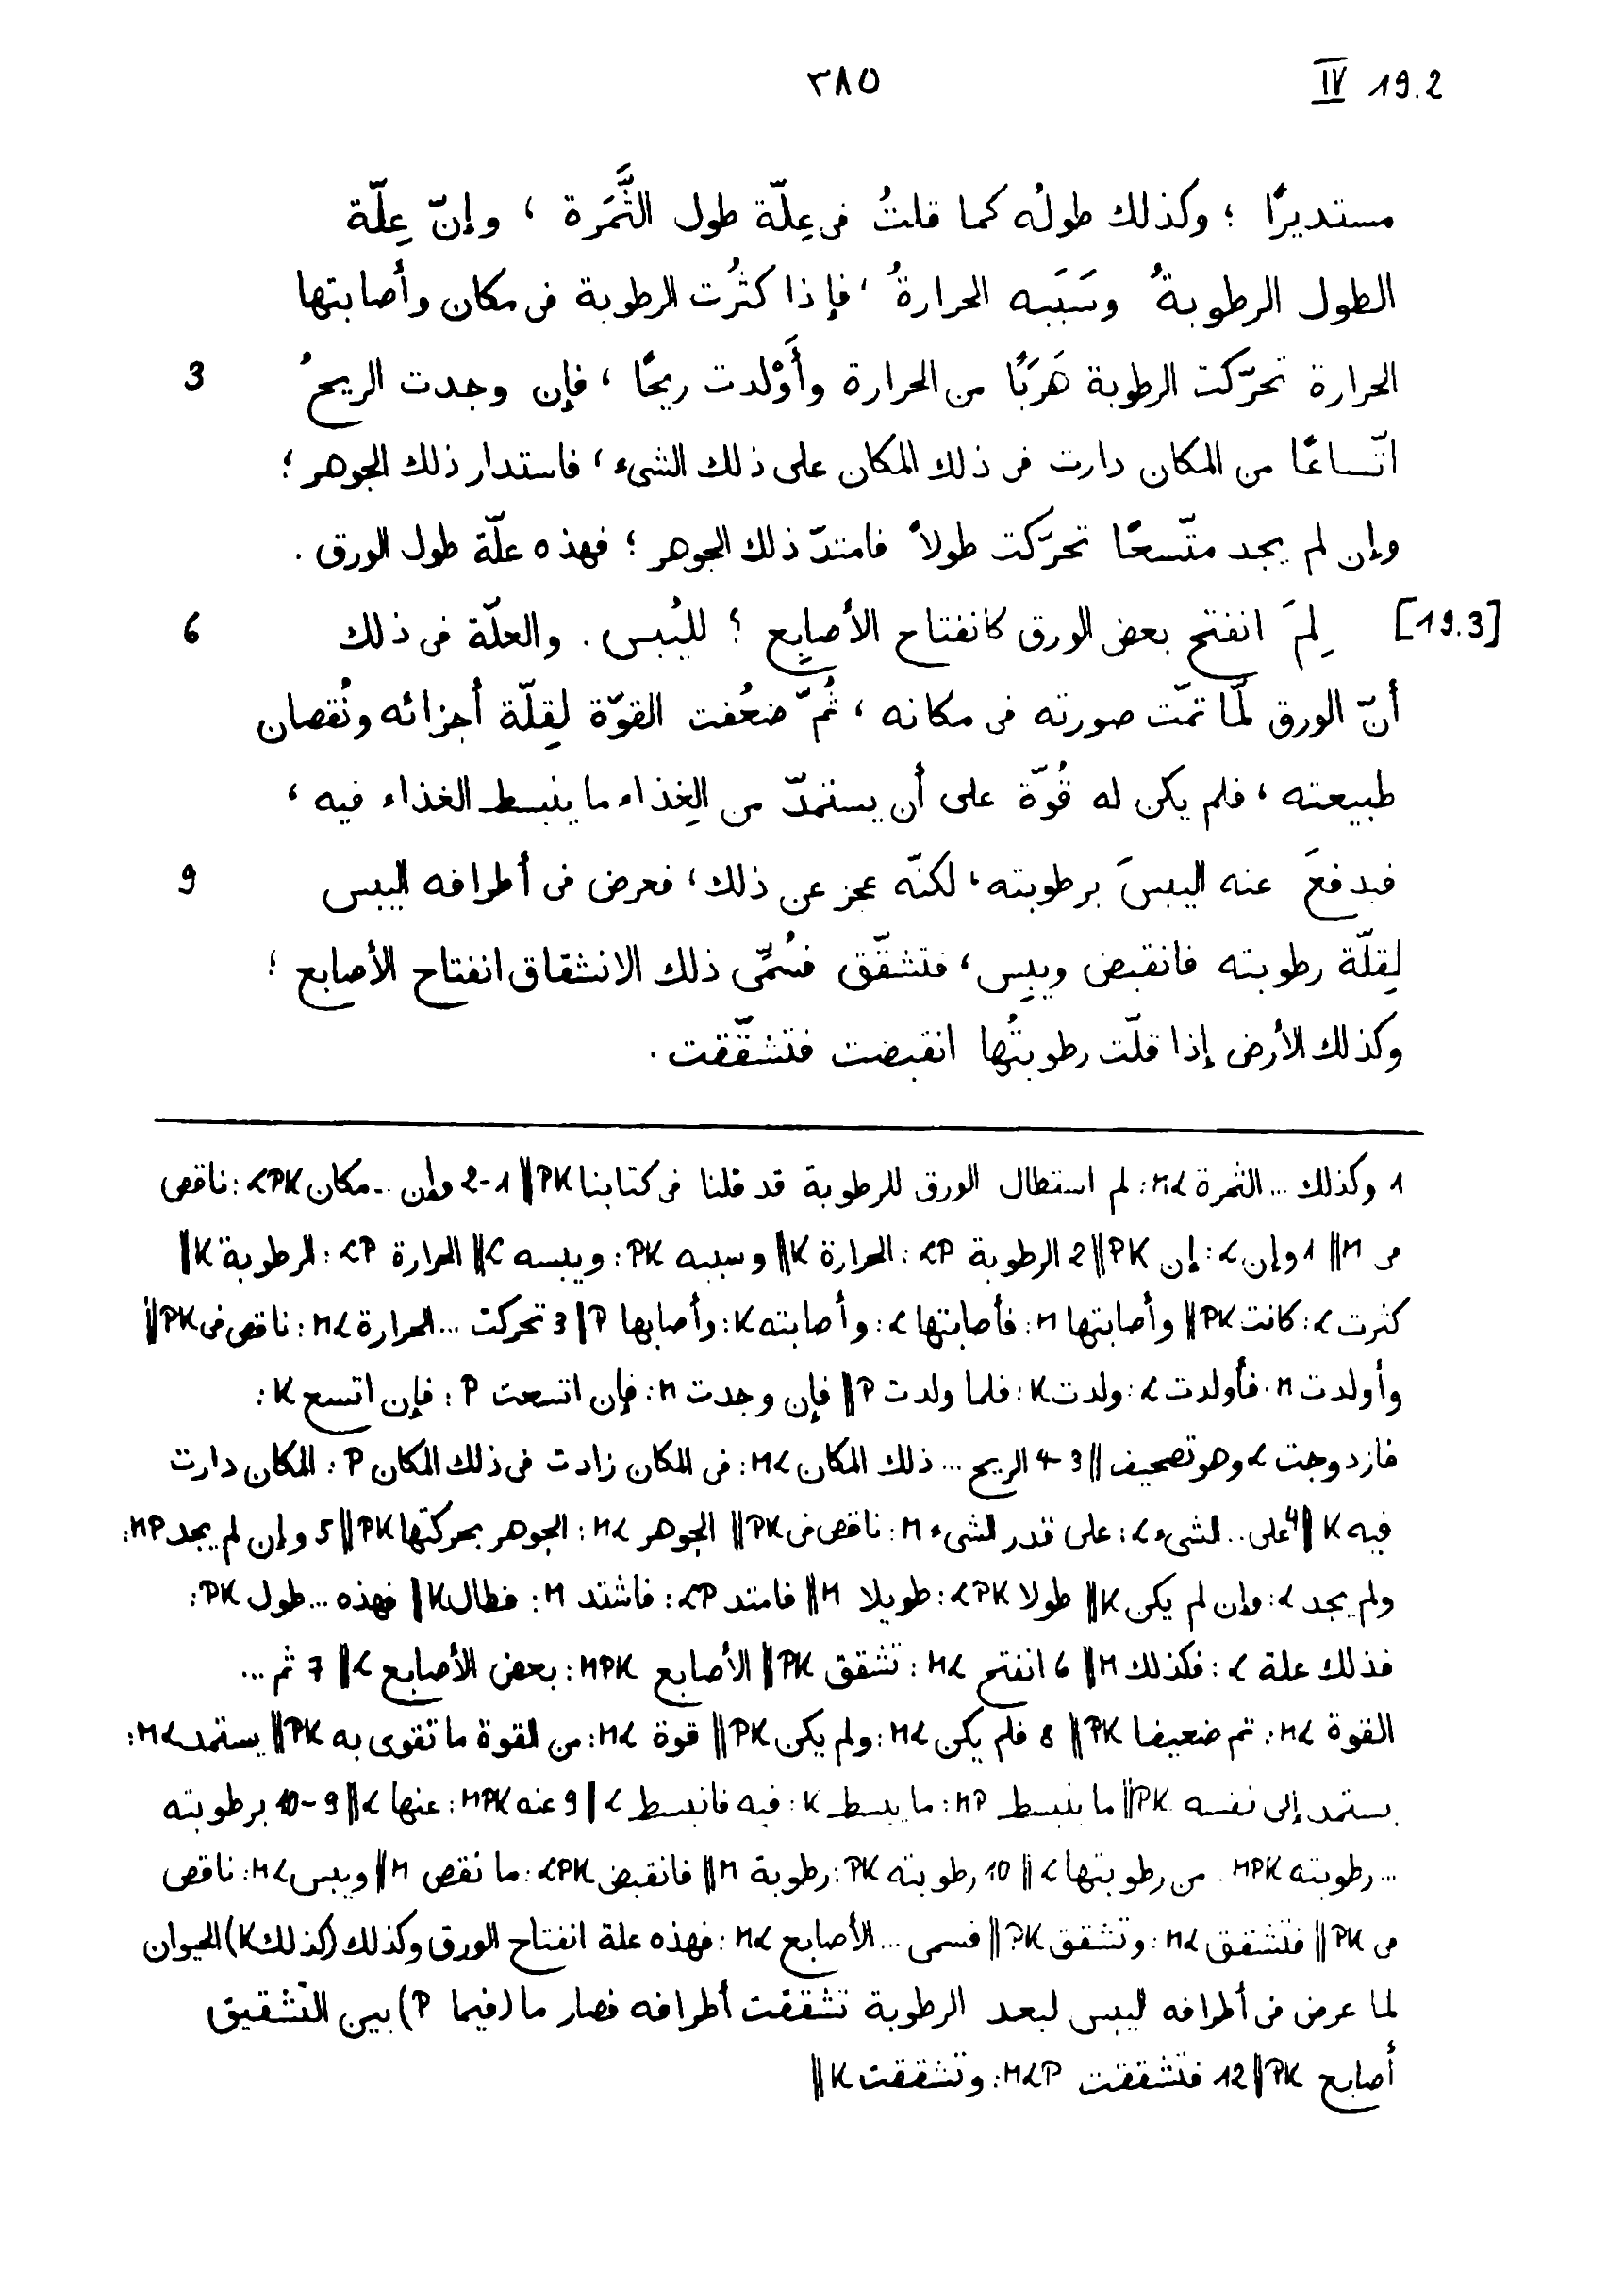 ٣٨٥ IV 19.2
مستديرًا ؛ وكذلك طولُه كما قلتُ فى عِلّة طول الثَّمَرة ، وإنّ عِلّة
الطول الرطوبةُ وسَبَبه الحرارةُ ، فإذا كثُرت الرطوبة فى مكان وأصابتها
الحرارة تحرّكت الرطوبة هَرَبًا من الحرارة وأَوْلدت ريحًا ، فإن وجدت الريحُ 3
اتّساعًا من المكان دارت فى ذلك المكان على ذلك الشىء ، فاستدار ذلك الجوهر ؛
وإن لم يجد متّسعًا تحرّكت طولاً فامتدّ ذلك الجوهر ؛ فهذه علّة طول الورق .
[19.3] لِمَ انفتح بعض الورق كانفتاح الأصابِع ؟ لليُبس . والعلّة فى ذلك 6
أنّ الورق لمّا تمّت صورته فى مكانه ، ثُمّ ضعُفت القوّة لِقِلّة أجزائه ونُقصان
طبيعته ، فلم يكن له قُوّة على أن يستمدّ من الغِذاء ما ينبسط الغذاء فيه ،
فيدفعَ عنه اليبسَ برطوبته ، لكنّه عجز عن ذلك ، فعرض فى أطرافه اليبس 9
لِقلّة رطوبته فانقبض ويبِس ، فتشقّق فسُمِّى ذلك الانشقاق انفتاح الأصابع ؛
وكذلك الأرض إذا قلّت رطوبتُها انقبضت فتشقّقت .
1 وكذلك ... الثمرة Mد: لم استطال الورق للرطوبة قد قلنا فى كتابنا PK ‖ 1-2 وإن ... مكان دPK: ناقص
فى M ‖ 1 وإن د: إن PK ‖ 2 الرطوبة دP: الحرارة K ‖ وسببه PK: ويبسه د ‖ الحرارة دP: الرطوبة K ‖
كثرت د: كانت PK ‖ وأصابتها M: فأصابتها د: وأصابته K: وأصابها P ‖ 3 تحركت ... الحرارة Mد: ناقص فى PK ‖
وأولدت M: فأولدت د: ولدت K: فلما ولدت P ‖ فإن وجدت M: فإن اتسعت P: فإن اتسع K:
فازدوجت د وهو تصحيف ‖ 3-4 الريح ... ذلك المكان Mد: فى المكان زادت فى ذلك المكان P: المكان دارت
فيه K ‖ 4 على ... الشىء د: على قدر الشىء M: ناقص فى PK ‖ الجوهر Mد: الجوهر بحركتها PK ‖ 5 وإن لم يجد MP:
ولم يجد د: وإن لم يكن K ‖ طولا دPK: طويلا M ‖ فامتد دP: فاشتد M: فطال K ‖ فهذه ... طول PK:
فذلك علة د: فكذلك M ‖ 6 انفتح Mد: تشقق PK ‖ الأصابع MPK: بعض الأصابع د ‖ 7 ثم ...
القوة Mد: تم ضعيفا PK ‖ 8 فلم يكن Mد: ولم يكن PK ‖ قوة Mد: من القوة ما تقوى به PK ‖ يستمد Mد:
يستمد إلى نفسه PK ‖ ما ينبسط MP: ما يبسط K: فيه فانبسط د ‖ 9 عنه MPK: عنها د ‖ 9-10 برطوبته
... رطوبته MPK: من رطوبتها د ‖ 10 رطوبته PK: رطوبة M ‖ فانقبض دPK: ما نقص M ‖ ويبس Mد: ناقص
فى PK ‖ فتشقق Mد: وتشقق PK ‖ فسمى ... الأصابع Mد: فهذه علة انفتاح الورق وكذلك (كذلك K) الحيوان
لما عرض فى أطرافه اليبس لبعد الرطوبة تشققت أطرافه فصار ما (فيما P) بين التشقيق
أصابع PK ‖ 12 فتشققت MدP: وتشققت K ‖